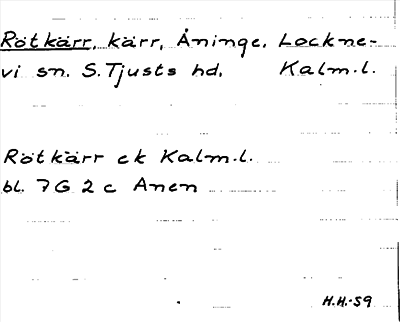 Rötkärr, kärr, Åninge, Lockne-
vi sn. S. Tjusts hd. Kalm.l.
Rötkärr ek Kalm.l.
bl. 7G 2c Anen
H.H.-59